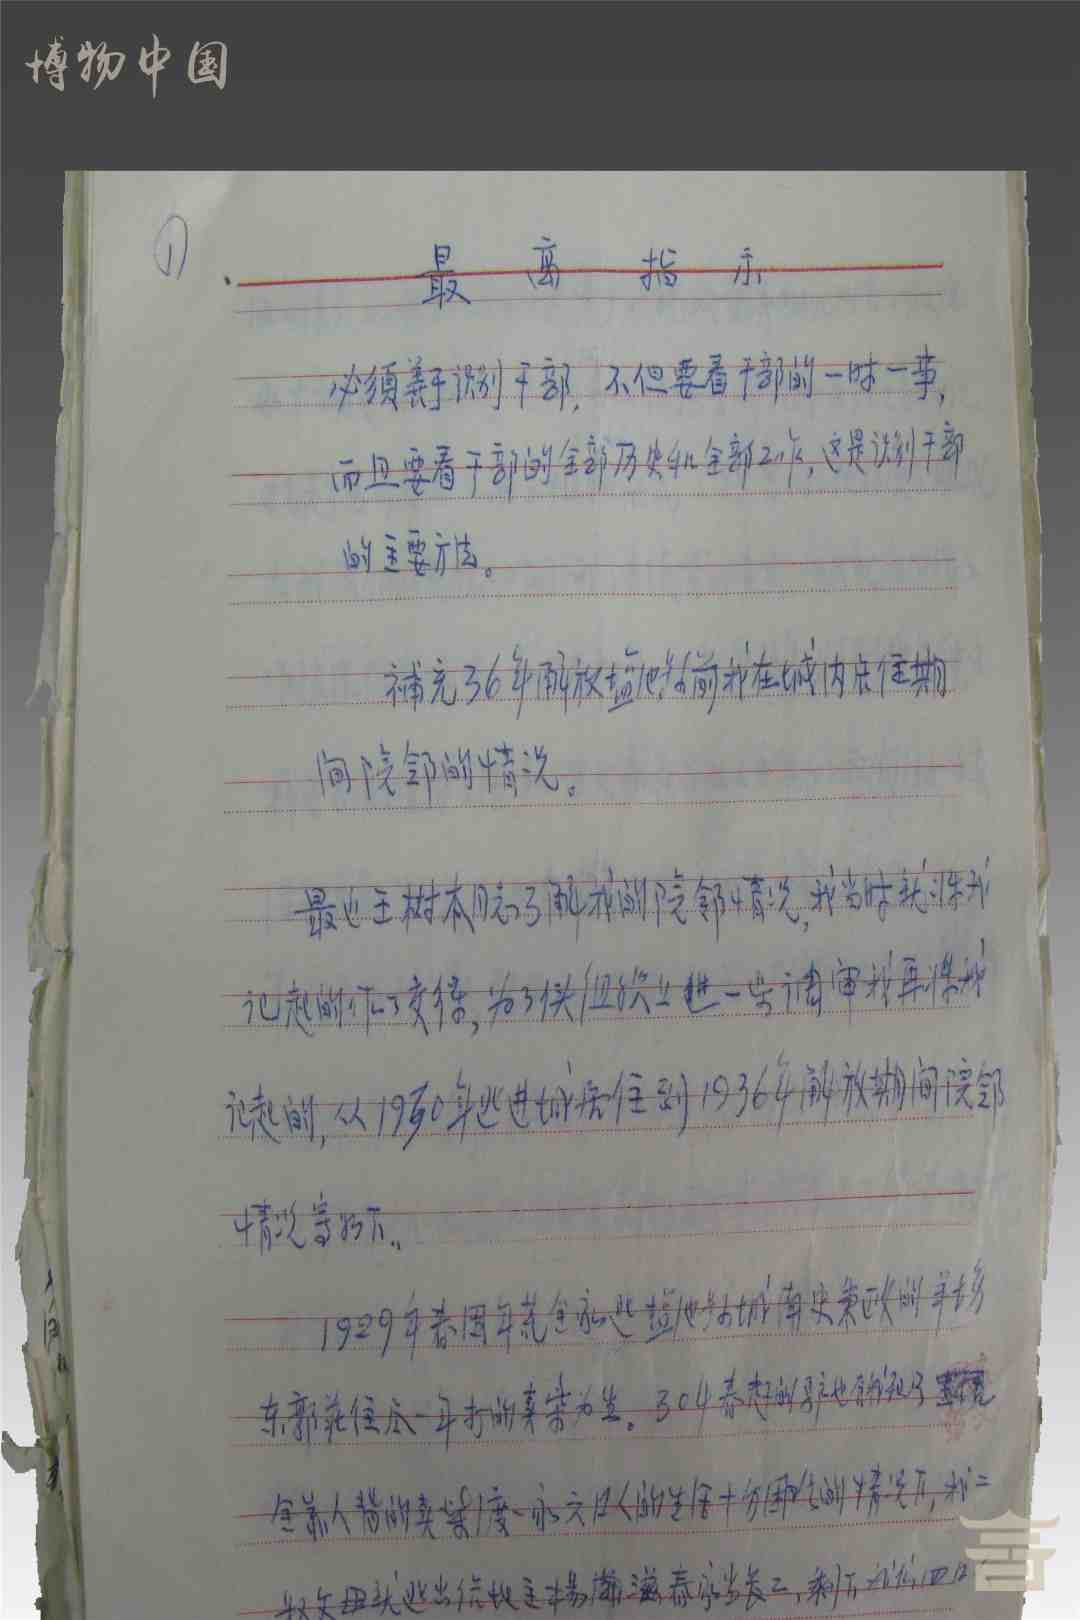 博物中国
①
最高指示
必须善于识别干部，不但要看干部的一时一事，
而且要看干部的全部历史和全部工作，这是识别干部
的主要方法。
补充36年解放盐池城前我在城内居住期
间院邻的情况。
最近王树本同志了解我的院邻情况，我当时就凭我
记起的作了交待，为了供组织上进一步清审我再凭我
记起的，从1930年迁进城居住到1936年解放期间院邻
情况写如下。
1929年春因年荒全家迁盐池城南史家的羊场
东郭庄住 一年打的卖柴为生。30年春 的
全靠人背的卖柴度 家六口人的生活十分困 的情况下，我二